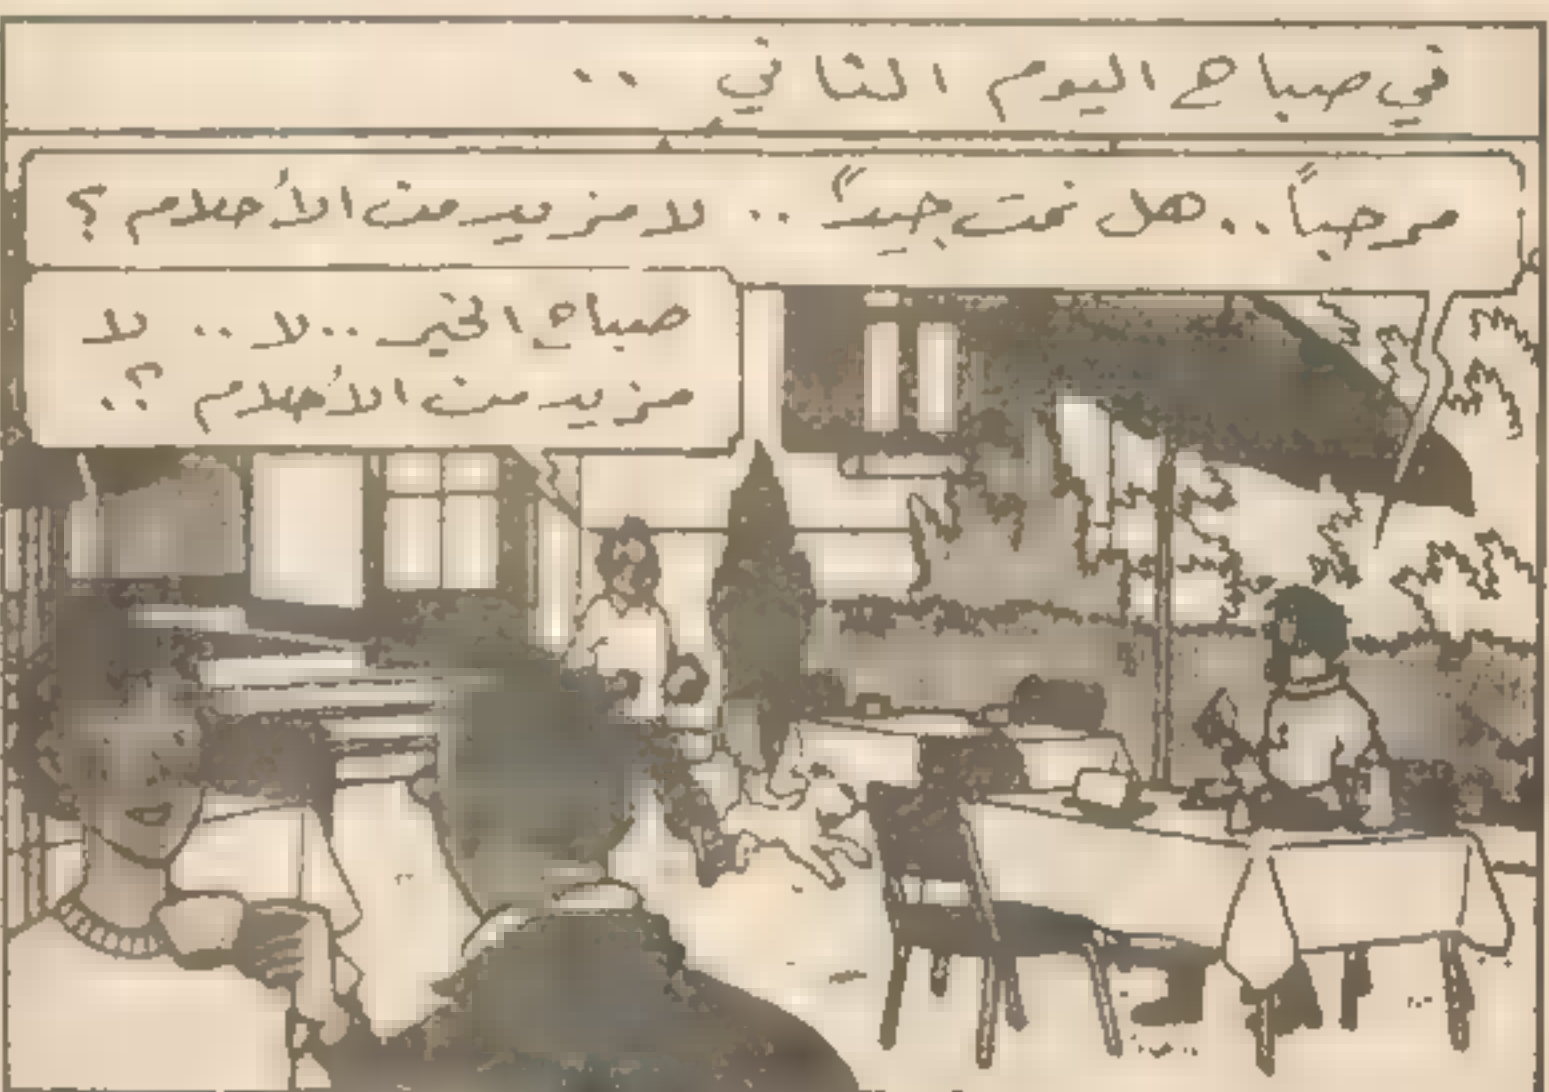 في صباح اليوم الثاني ..
مرحباً .. هل نمت جيداً .. لا مزيد من الأحلام ؟
صباح الخير .. لا .. لا
مزيد من الأحلام ؟..